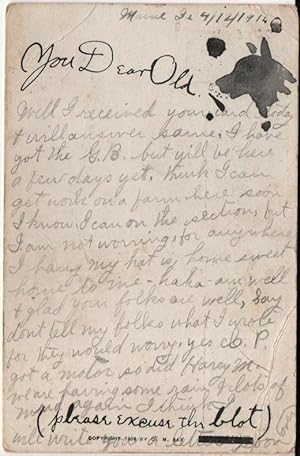 Maine Ia 4/14/1910
You Dear Old
Well I received your card today
& will answer same. I have
got the G.B. but will be here
a few days yet, think I can
get work on a farm here soon
I know I can on the section, but
I am not worring, for anywhere
I hang my hat is home sweet
home to me - haha am well
& glad your folks are well, Say
dont tell my folks what I wrote
for they would worry, yes P.
got a motor so did Harry M.
we are having some rain & lots of
mud again I think I
(please excuse the blot)
will write you a letter soon
COPYRIGHT 1906 BY